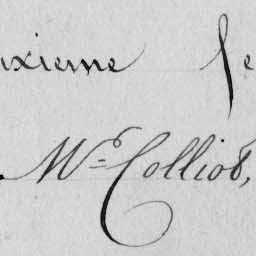 uxieme Se
Me Colliot,